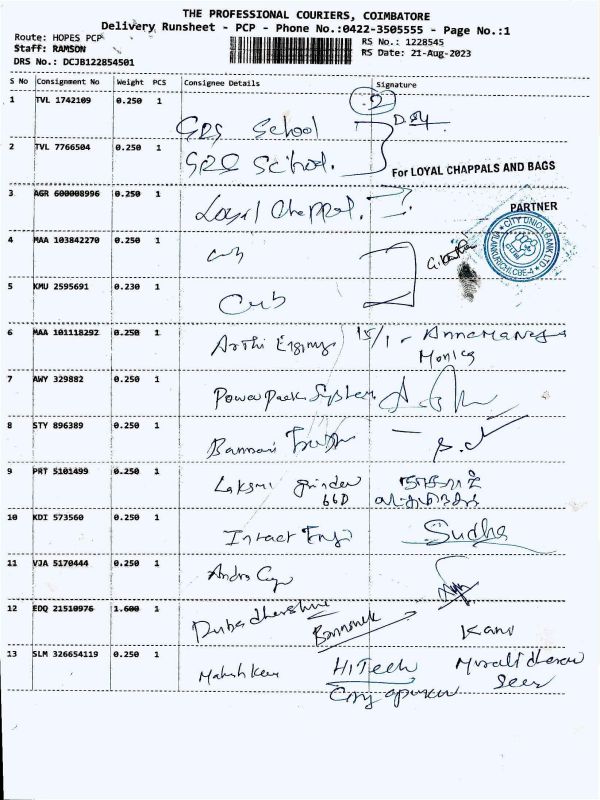 THE PROFESSIONAL COURIERS, COIMBATORE
Delivery Runsheet - PCP - Phone No.:0422-3505555 - Page No.:1
Route: HOPES PCP
Staff: RAMSON
DRS No.: DCJB122854501
RS No.: 1228545
RS Date: 21-Aug-2023
S No Consignment No Weight PCS Consignee Details Signature
1 TVL 1742109 0.250 1 GRS School
2 TVL 7766504 0.250 1 GRS School.
For LOYAL CHAPPALS AND BAGS
PARTNER
3 AGR 600008996 0.250 1 Loyal Chappal.
4 MAA 103842270 0.250 1 Cub
CITY UNION BANK LTD
5 KMU 2595691 0.230 1 Cub
6 MAA 101118292 0.250 1 15/1 -
Monica
7 AWY 329882 0.250 1 Power pack System
8 STY 896389 0.250 1 Bannari
9 PRT 5101499 0.250 1 Laksmi grinder
10 KDI 573560 0.250 1 Intact Sudha
11 VJA 5170444 0.250 1 Andro
12 EDQ 21510976 1.600 1
13 SLM 326654119 0.250 1 HiTech